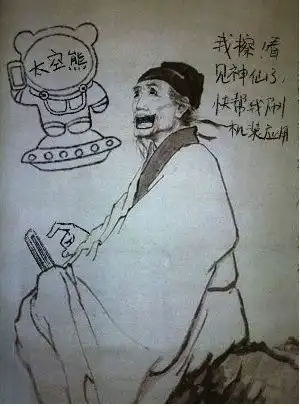 太空熊
我擦！看
见神仙了，
快帮我刷
机装应用